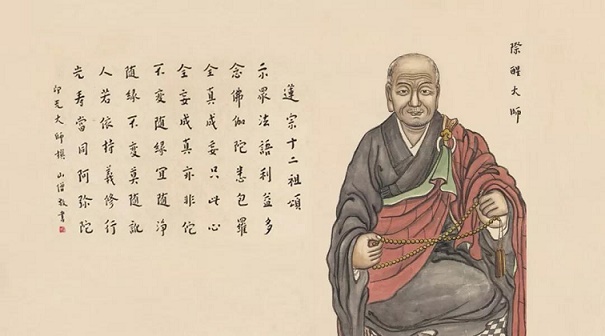 際醒大師
蓮宗十二祖頌
示眾法語利益多
念佛伽陀悉包羅
全真成妄只此心
全妄成真亦非佗
不變隨緣宜隨淨
隨緣不變莫隨訛
人若依持義修行
光壽當同阿彌陀
印光大師撰 山僧敬書